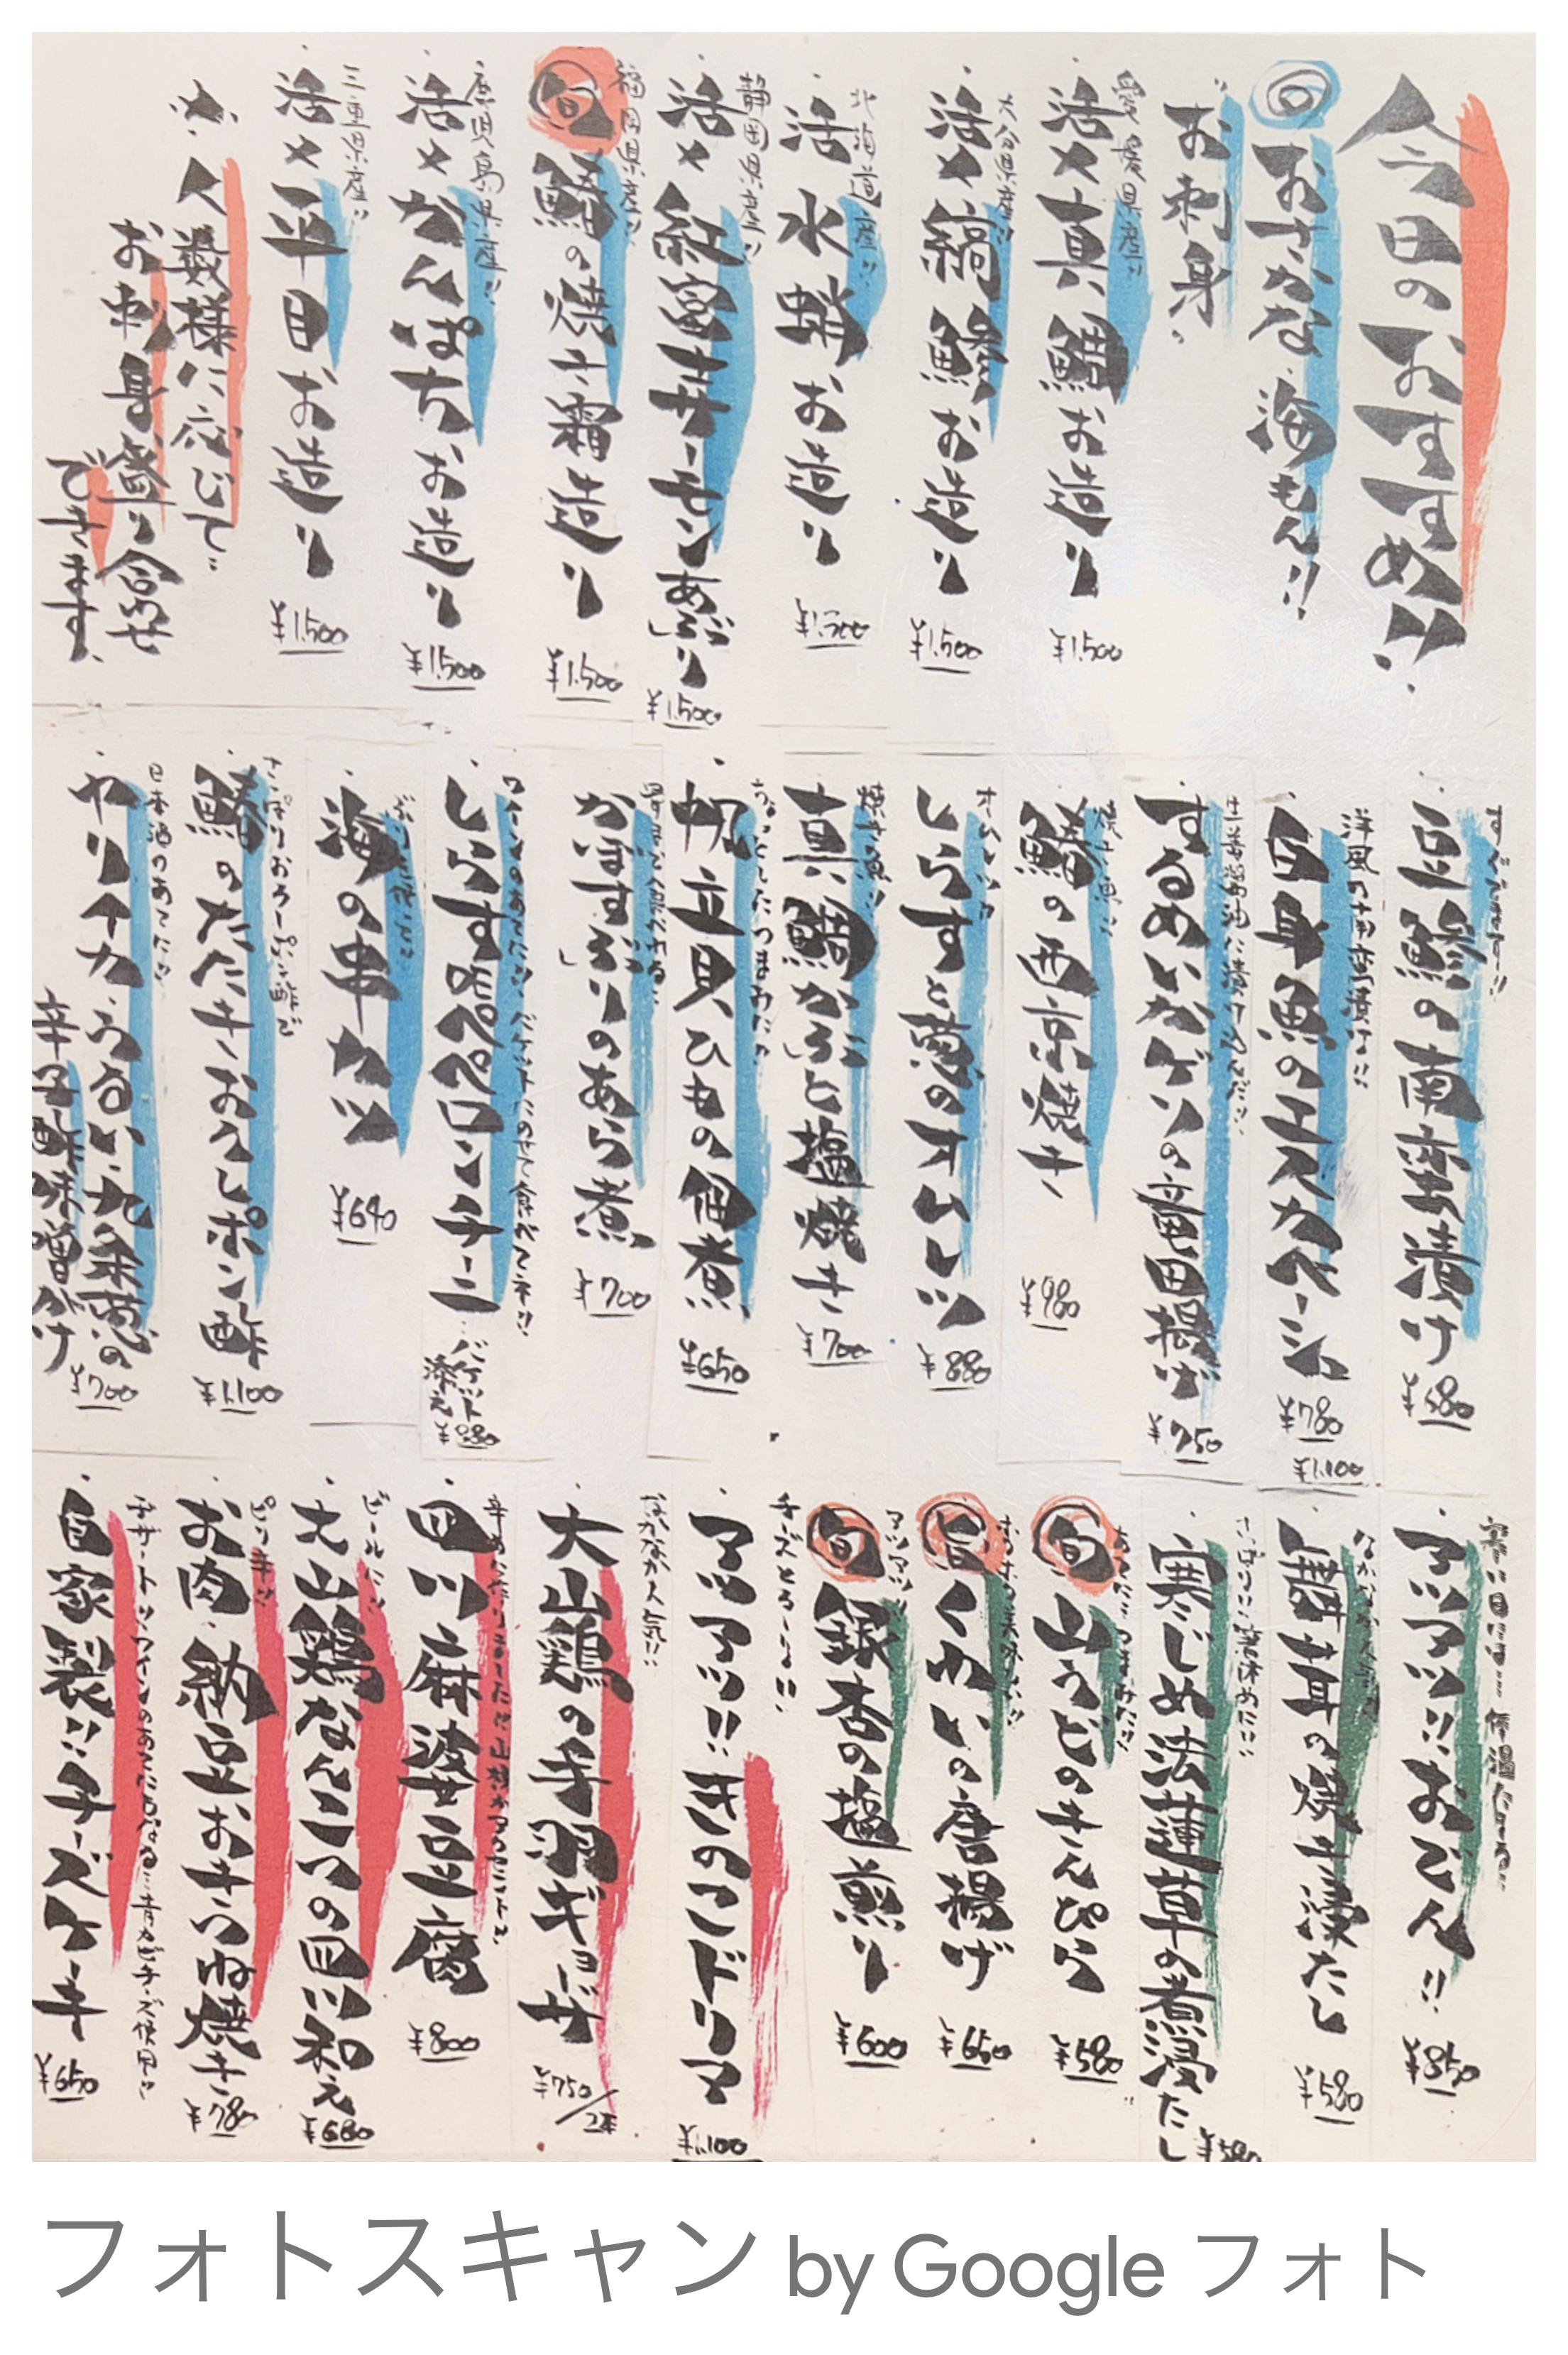 今日のおすすめ!!
旬おさかな、海もん!!
お刺身
愛媛県産!!
活〆真鯛お造り
¥1,500
大分県産!!
活〆縞鯵お造り
¥1,500
北海道産!!
活水蛸お造り
¥1,500
静岡県産!!
活〆紅富士サーモンあぶり
¥1,500
福岡県産!!
旬鰆の焼き霜造り
¥1,500
鹿児島県産!!
活〆かんぱちお造り
¥1,500
三重県産!!
活〆平目お造り
¥1,500
人数様に応じて
お刺身盛り合わせ
できます
豆鯵の南蛮漬け
¥680
洋風の南蛮漬け!!
白身魚のエスカベーシュ
¥780
生姜醤油に漬け込んだ!!
するめいかげその竜田揚げ
¥750
焼き魚!!
鰆の西京焼き
¥980
しらすと葱のオムレツ
¥880
焼き魚!!
真鯛かぶと塩焼き
¥700
帆立貝ひもの佃煮
¥650
かぼすぶりのあら煮
¥700
ワインのあてに!!バケットにのせて食べてネ!!
しらすペペロンチーニ
バケット添え
¥880
海の串カツ
¥640
さっぱりおろしポン酢で
鰆のたたきおろしポン酢
¥1,100
日本酒のあてに!!
やりイカ、うるい、九条葱の
辛子酢味噌がけ
¥700
アツアツ!!おでん!!
¥850
なかなか人気!!
舞茸の焼き浸たし
¥580
寒じめ法蓮草の煮浸たし
¥580
旬山うどのきんぴら
¥580
旨くわいの唐揚げ
¥650
アツアツ!!
旬銀杏の塩煎り
¥600
チーズとろーり!!
アツアツ!!きのこドリア
¥1,100
なかなか人気!!
大山鶏の手羽ギョーザ
¥750/2本
四川麻婆豆腐
¥800
ビールに!!
大山鶏なんこつの四川和え
¥680
ピリ辛!!
お肉、納豆おきつね焼き
¥780
自家製!!チーズケーキ
¥650
フォトスキャン by Google フォト